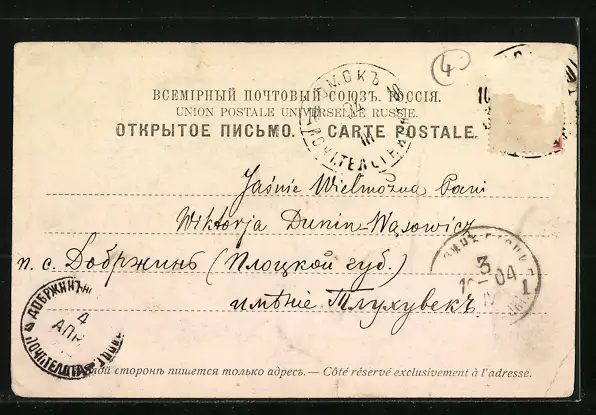 4
ВСЕМІРНЫЙ ПОЧТОВЫЙ СОЮЗЪ. РОССІЯ.
UNION POSTALE UNIVERSELLE RUSSIE.
ОТКРЫТОЕ ПИСЬМО. CARTE POSTALE.
Jaśnie Wielmożna Pani
Wiktorja Dunin-Wąsowicz
п. с. Добржинь (Плоцкой губ.)
имѣніе Тлухувекъ
3
04
ДОБРЖИНЬ
4
АПР
сторонѣ пишется только адресъ. — Côté réservé exclusivement à l'adresse.